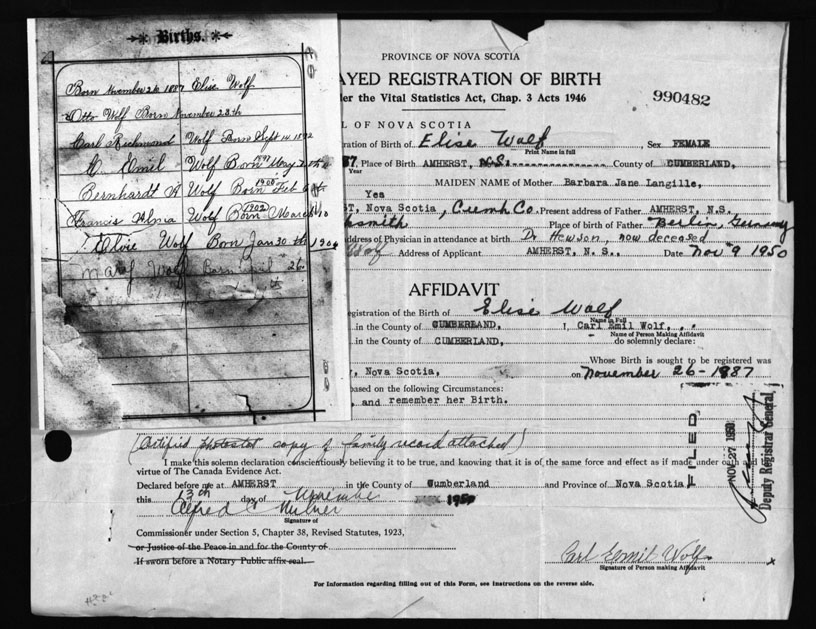 Births.
Born November 26 1887 Elise Wolf
Otto Wolf Born November 28th
Carl Richmond Wolf Born Sept 14 1892
C. Emil Wolf Born May
Bernhardt A Wolf Born 1900 Feb
Francis Wolf Born 1902 March 10
Elsie Wolf Born Jan 30 th 1904
Mary Wolf Born
PROVINCE OF NOVA SCOTIA
AYED REGISTRATION OF BIRTH
der the Vital Statistics Act, Chap. 3 Acts 1946
990482
L OF NOVA SCOTIA
ration of Birth of Elise Wolf Sex FEMALE
Print Name in full
87, Place of Birth AMHERST, N.S. County of CUMBERLAND,
Year
MAIDEN NAME of Mother Barbara Jane Langille,
Yes
ST, Nova Scotia, Cumb Co. Present address of Father AMHERST, N.S.
ksmith Place of birth of Father Berlin, Germany
ddress of Physician in attendance at birth Dr Hewson, now deceased
Address of Applicant AMHERST, N. S., Date Nov 9 1950
AFFIDAVIT
egistration of the Birth of Elise Wolf
Name in Full
in the County of CUMBERLAND, I, Carl Emil Wolf,
Name of Person Making Affidavit
in the County of CUMBERLAND, do solemnly declare:
Whose Birth is sought to be registered was
, Nova Scotia, on November 26-1887
based on the following Circumstances:
, and remember her Birth.
(Certified photostat copy of family record attached)
I make this solemn declaration conscientiously believing it to be true, and knowing that it is of the same force and effect as if made under oath and
virtue of The Canada Evidence Act.
Declared before me at AMHERST in the County of Cumberland and Province of Nova Scotia
this 13th day of Novembe 1950
Alfred C Milner
Signature of
Commissioner under Section 5, Chapter 38, Revised Statutes, 1923,
or Justice of the Peace in and for the County of
If sworn before a Notary Public affix seal.
Carl Emil Wolf
Signature of Person making Affidavit
x
For Information regarding filling out of this Form, see Instructions on the reverse side.
FILED
NOV 27 1950
Deputy Registrar General